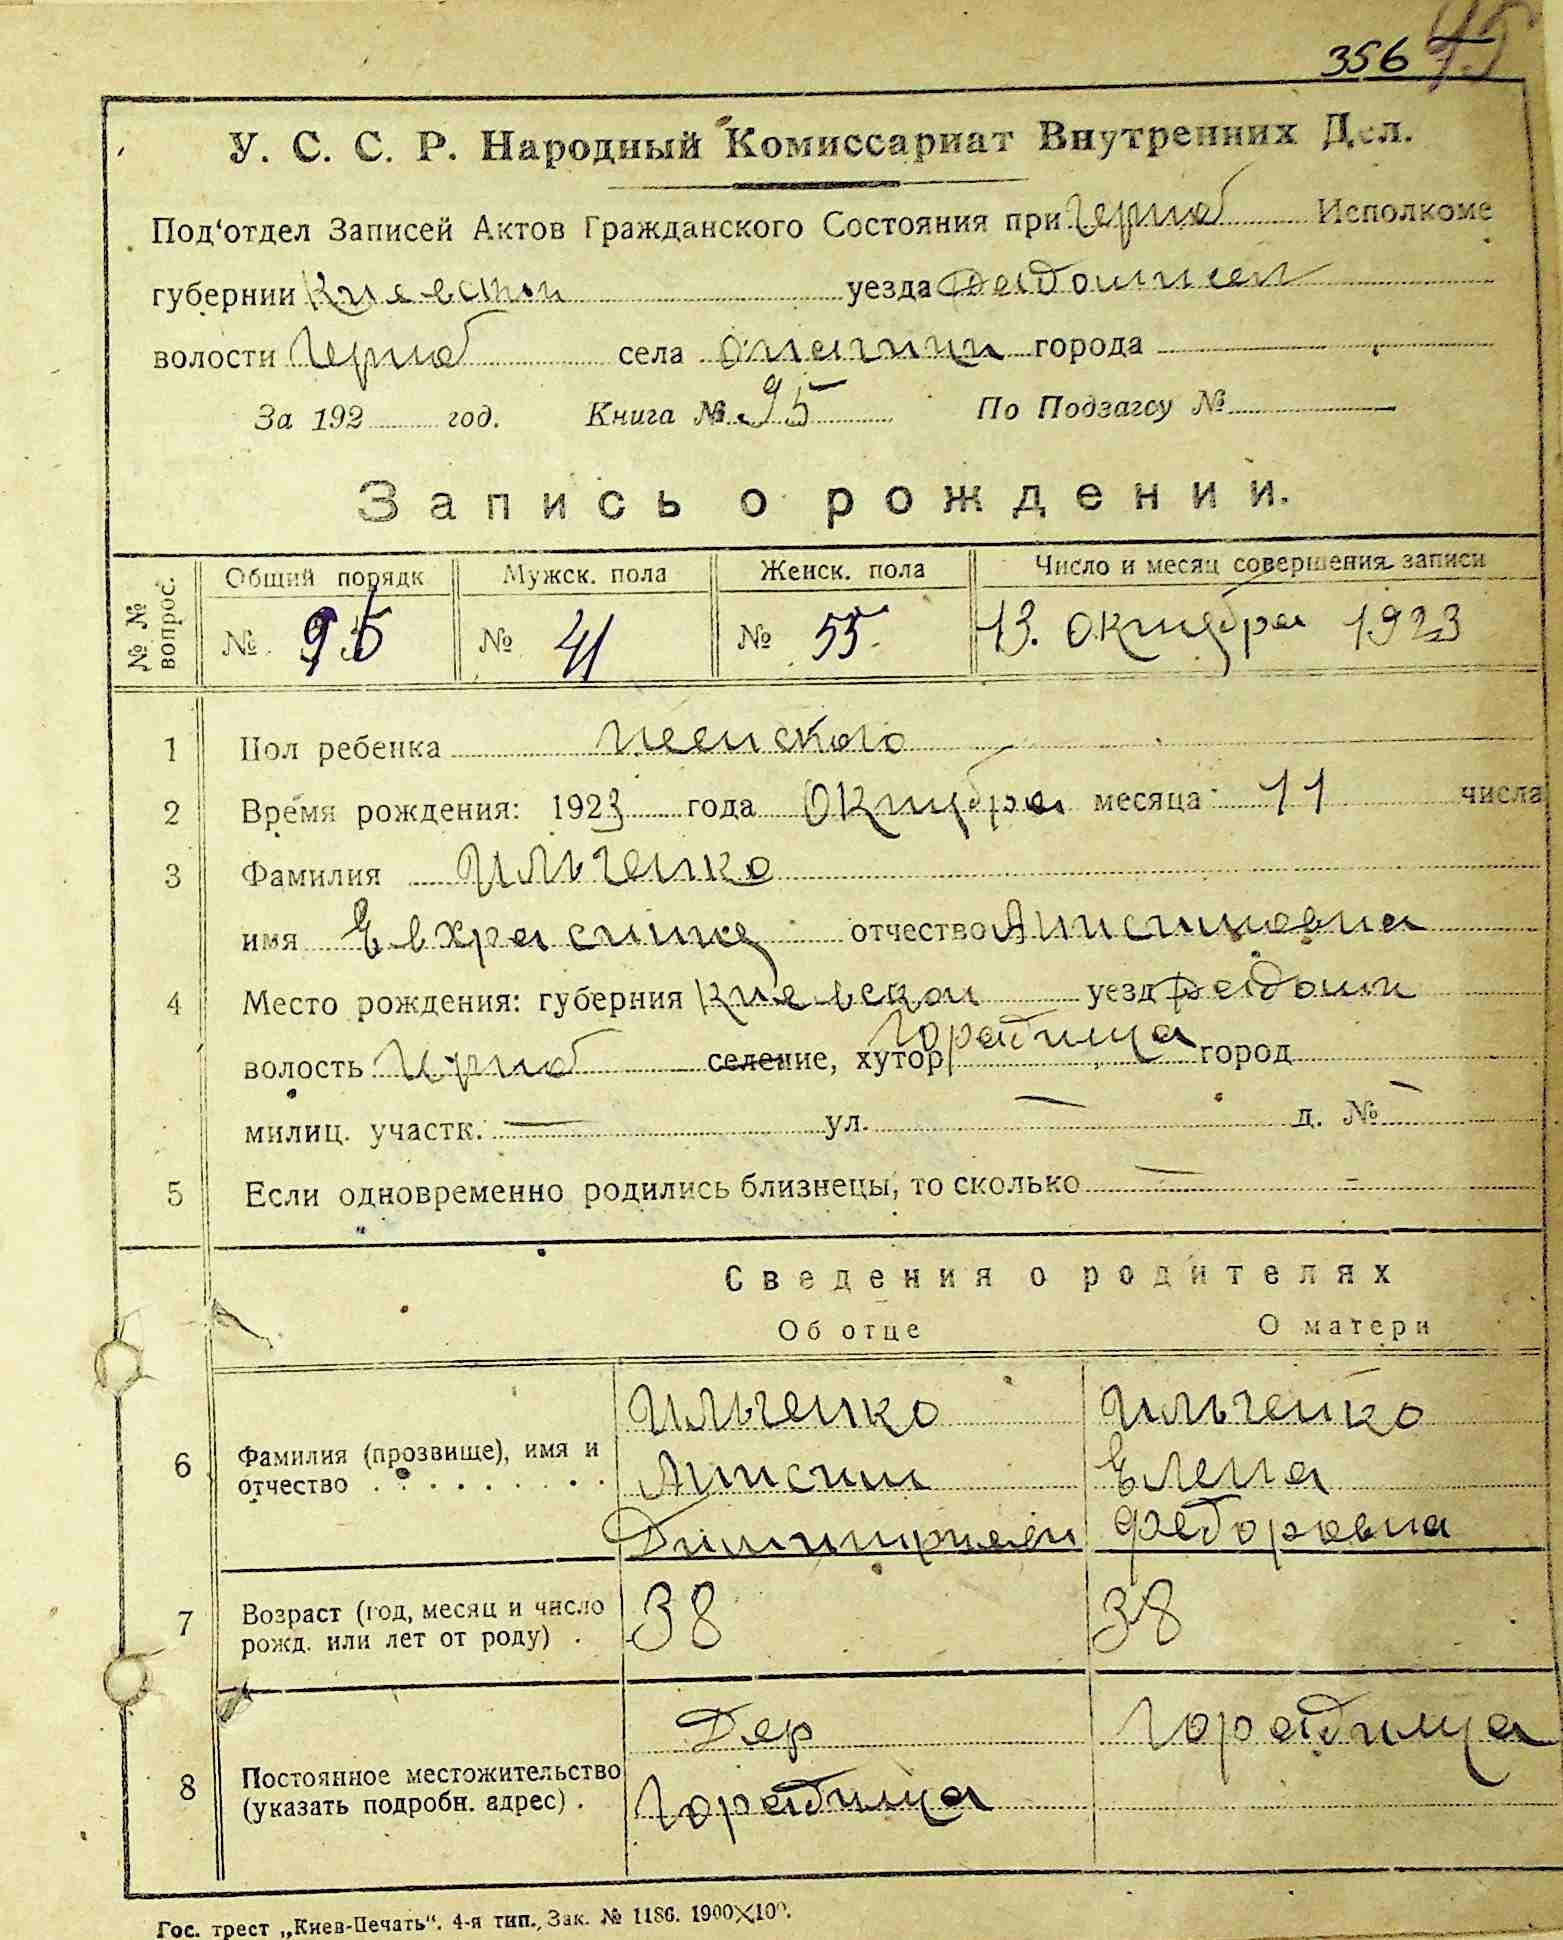 356 45
У. С. С. Р. Народный Комиссариат Внутренних Дел.
Под‘отдел Записей Актов Гражданского Состояния при Черноб Исполкоме
губернии Киевской уезда Радомысл
волости Черноб села города
За 192 год. Книга № 95 По Подзагсу №
Запись о рождении.
№ № вопрос. Общий порядк Мужск. пола Женск. пола Число и месяц совершения записи
№ 95 № 41 № 55 13. Октября 1923
1 Пол ребенка женского
2 Время рождения: 1923 года Октября месяца 11 числа
3 Фамилия Ильченко
имя Евхрасиния отчество Анисимовна
4 Место рождения: губерния Киевской уезд Радомы
волость Черноб селение, хутор Горадища город
милиц. участк. — ул. — д. № —
5 Если одновременно родились близнецы, то сколько —
Сведения о родителях
Об отце О матери
Ильченко Ильченко
6 Фамилия (прозвище), имя и Анисим Елена
отчество Федоровна
7 Возраст (год, месяц и число 38 38
рожд. или лет от роду) .
Дер Горадища
8 Постоянное местожительство
(указать подробн. адрес) . Горадища
Гос. трест „Киев-Печать“. 4-я тип., Зак. № 1186. 1900×100.